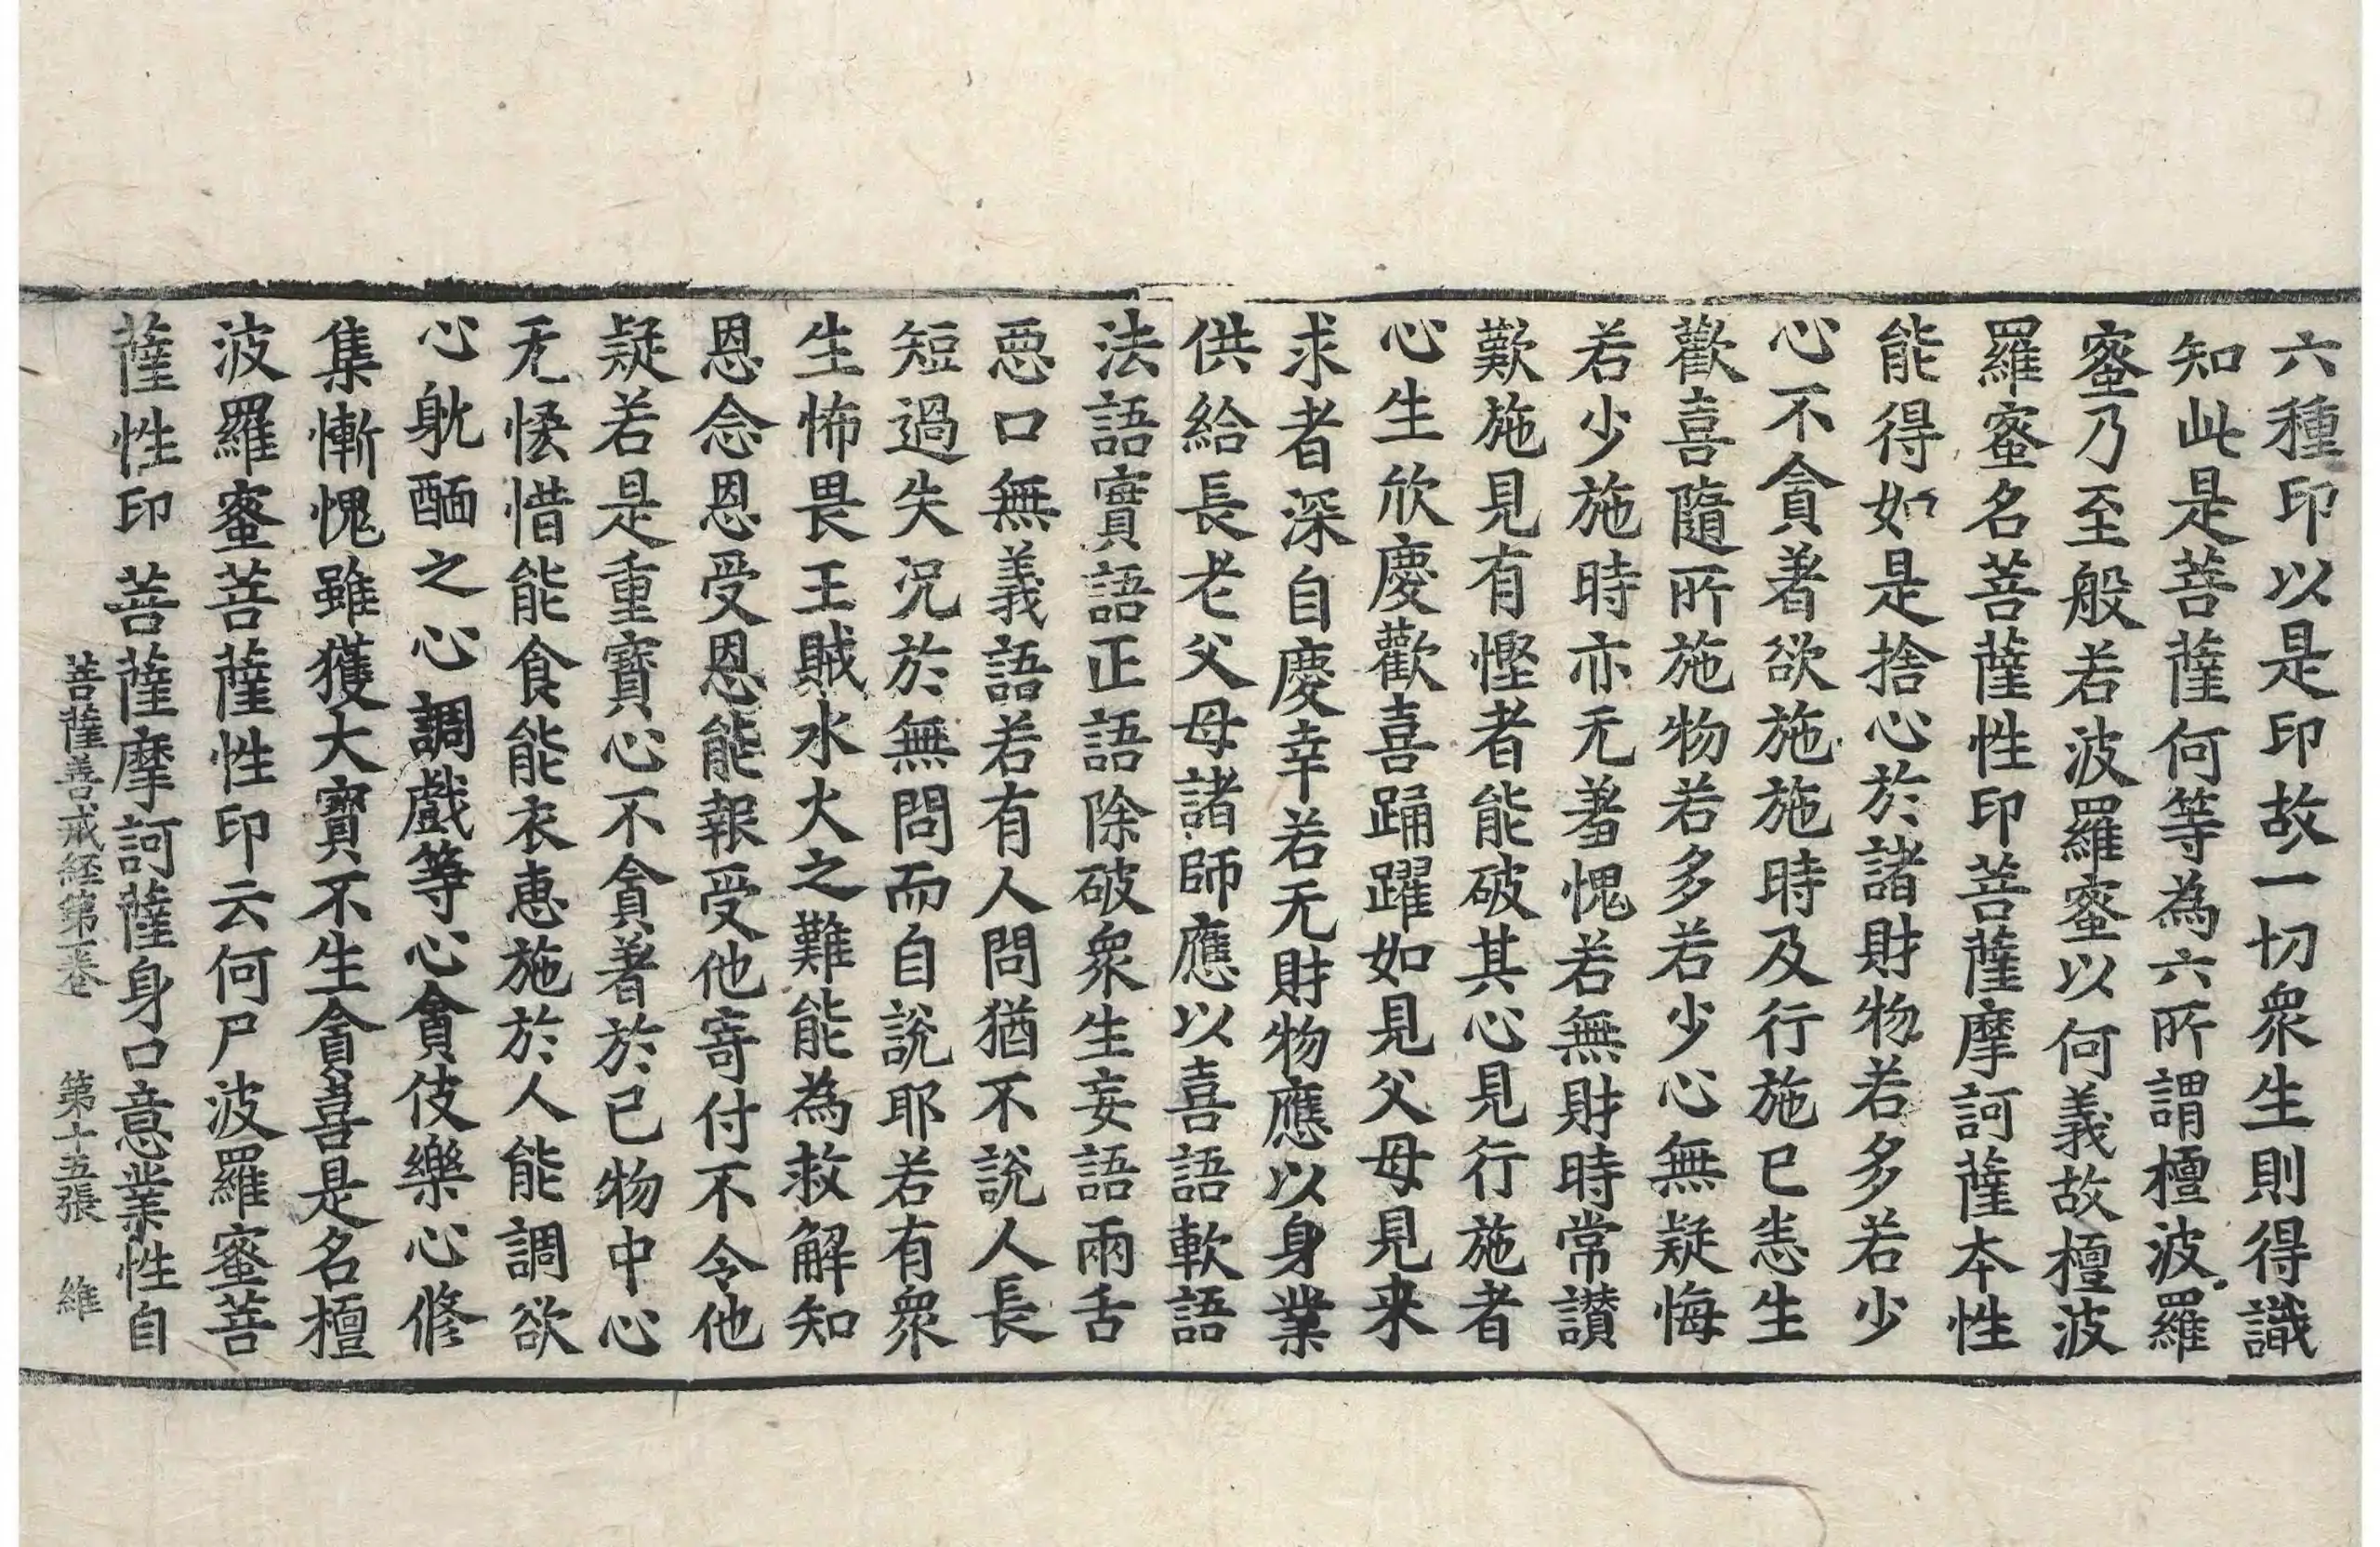 六種印以是印故一切衆生則得識
知此是菩薩何等為六所謂檀波羅
蜜乃至般若波羅蜜以何義故檀波
羅蜜名菩薩性印菩薩摩訶薩本性
能得如是捨心於諸財物若多若少
心不貪著欲施施時及行施已恚生
歡喜隨所施物若多若少心無疑悔
若少施時亦无羞愧若無財時常讃
歎施見有慳者能破其心見行施者
心生欣慶歡喜踊躍如見父母見来
求者深自慶幸若无財物應以身業
供給長老父母諸師應以喜語軟語
法語實語正語除破衆生妄語兩舌
惡口無義語若有人問猶不說人長
短過失況於無問而自說耶若有衆
生怖畏王賊水火之難能為救解知
恩念恩受恩能報受他寄付不令他
疑若是重寶心不貪著於己物中心
无悋惜能食能衣惠施於人能調欲
心躭酾之心調戲等心貪伎樂心修
集慚愧雖獲大寶不生貪喜是名檀
波羅蜜菩薩性印云何尸波羅蜜菩
薩性印菩薩摩訶薩身口意業性自
菩薩善戒経第一卷 第十五張 維